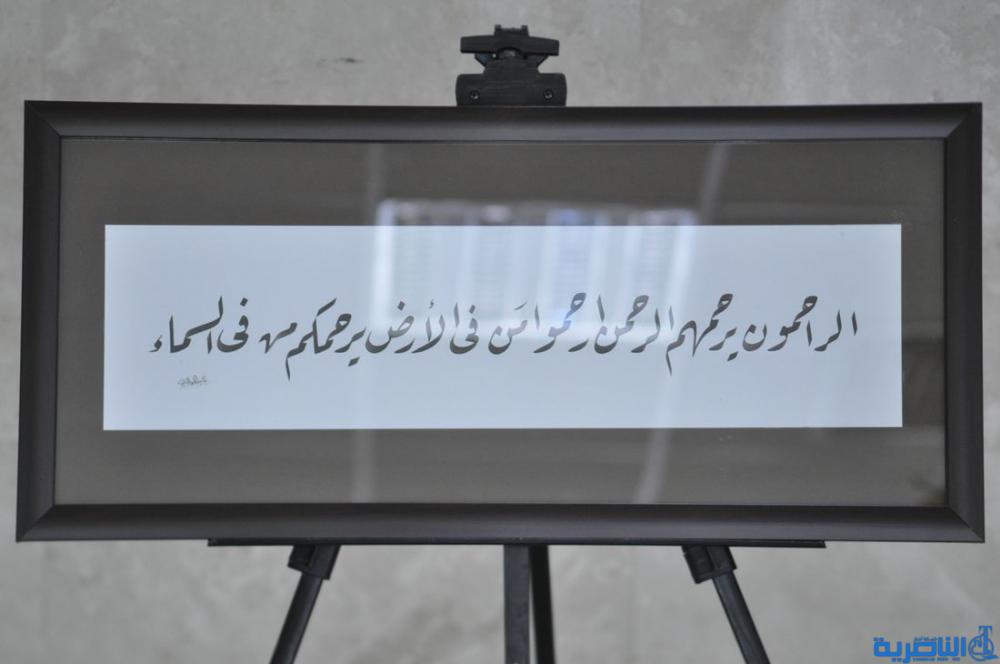 الراحمون يرحمهم الرحمن ارحموا مَن في الأرض يرحمكم من في السماء
الناصرية